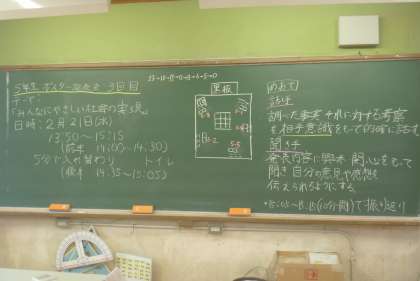 5年生 ポスターセッション 3回目
テーマ
「みんなにやさしい社会の実現」
日時:2月21日(水)
13:50〜15:15
(前半 14:00〜14:30)
5分で入れ替わり トイレ
(後半 14:35〜15:05)
黒板
めあて
話し手
調べた事実やそれに対する考察
を相手意識をもって的確に話す
聞き手
発表内容に興味関心をもって
聞き自分の意見や感想を
伝えられるようにする。
*15:05〜15:15(10分間)で振り返り